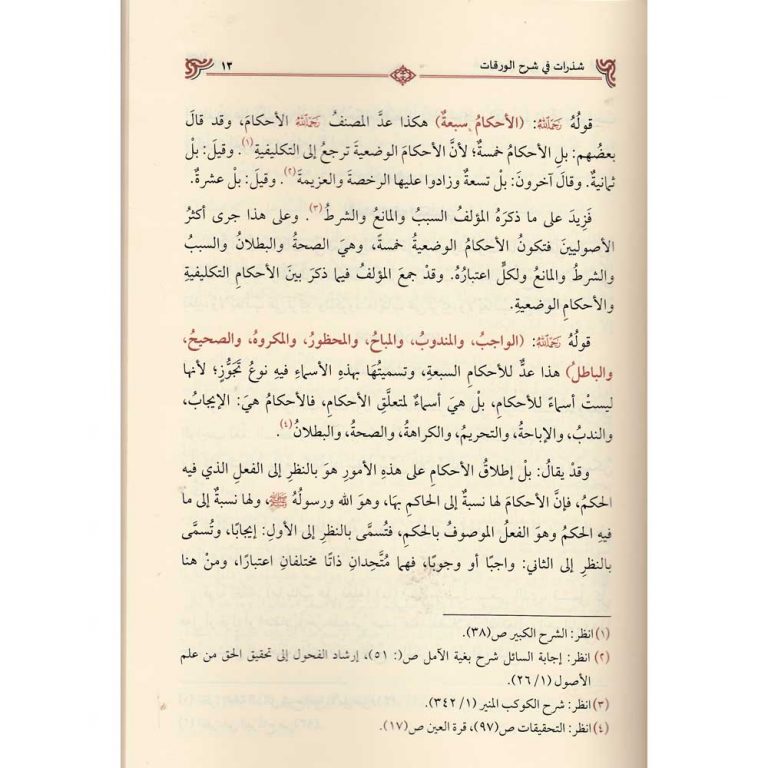 شذرات في شرح الورقات
١٣
قولُهُ رَحِمَهُ اللَّهُ: (الأحكامُ سبعةٌ) هكذا عدَّ المصنفُ رَحِمَهُ اللَّهُ الأحكامَ، وقد قالَ
بعضُهم: بلِ الأحكامُ خمسةٌ؛ لأنَّ الأحكامَ الوضعيةَ ترجعُ إلى التكليفيةِ(١). وقيلَ: بلْ
ثمانيةٌ. وقالَ آخرونَ: بلْ تسعةٌ وزادوا عليها الرخصةَ والعزيمةَ(٢). وقيلَ: بلْ عشرةٌ.
فَزِيدَ على ما ذكرَهُ المؤلفُ السببُ والمانعُ والشرطُ(٣). وعلى هذا جرى أكثرُ
الأصوليينَ فتكونُ الأحكامُ الوضعيةُ خمسةً، وهيَ الصحةُ والبطلانُ والسببُ
والشرطُ والمانعُ ولكلٍّ اعتبارُهُ. وقدْ جمعَ المؤلفُ فيما ذكرَ بينَ الأحكامِ التكليفيةِ
والأحكامِ الوضعيةِ.
قولُهُ رَحِمَهُ اللَّهُ: (الواجبُ، والمندوبُ، والمباحُ، والمحظورُ، والمكروهُ، والصحيحُ،
والباطلُ) هذا عدٌّ للأحكامِ السبعةِ، وتسميتُهَا بهذهِ الأسماءِ فيهِ نوعُ تَجَوُّزٍ؛ لأنها
ليستْ أسماءً للأحكامِ، بلْ هيَ أسماءٌ لمتعلَّقِ الأحكامِ، فالأحكامُ هيَ: الإيجابُ،
والندبُ، والإباحةُ، والتحريمُ، والكراهةُ، والصحةُ، والبطلانُ(٤).
وقدْ يقالُ: بلْ إطلاقُ الأحكامِ على هذهِ الأمورِ هوَ بالنظرِ إلى الفعلِ الذي فيه
الحكمُ، فإنَّ الأحكامَ لها نسبةٌ إلى الحاكمِ بهَا، وهوَ الله ورسولُهُ ﷺ، ولها نسبةٌ إلى ما
فيهِ الحكمُ وهوَ الفعلُ الموصوفُ بالحكمِ، فتُسمَّى بالنظرِ إلى الأولِ: إيجابًا، وتُسمَّى
بالنظرِ إلى الثاني: واجبًا أو وجوبًا، فهما مُتَّحِدانِ ذاتًا مختلفانِ اعتبارًا، ومنْ هنا
(١) انظر: الشرح الكبير ص(٣٨).
(٢) انظر: إجابة السائل شرح بغية الآمل ص(: ٥١)، إرشاد الفحول إلى تحقيق الحق من علم
الأصول (١/ ٢٦).
(٣) انظر: شرح الكوكب المنير (١/ ٣٤٢).
(٤) انظر: التحقيقات ص(٩٧)، قرة العين ص(١٧).